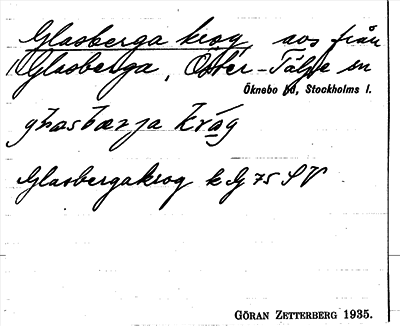 Glasberga krog avs från
Glasberga, Öster-Tälje sn
Öknebo hd, Stockholms l.
Glasbergakrog k G 75 SV
GÖRAN ZETTERBERG 1935.